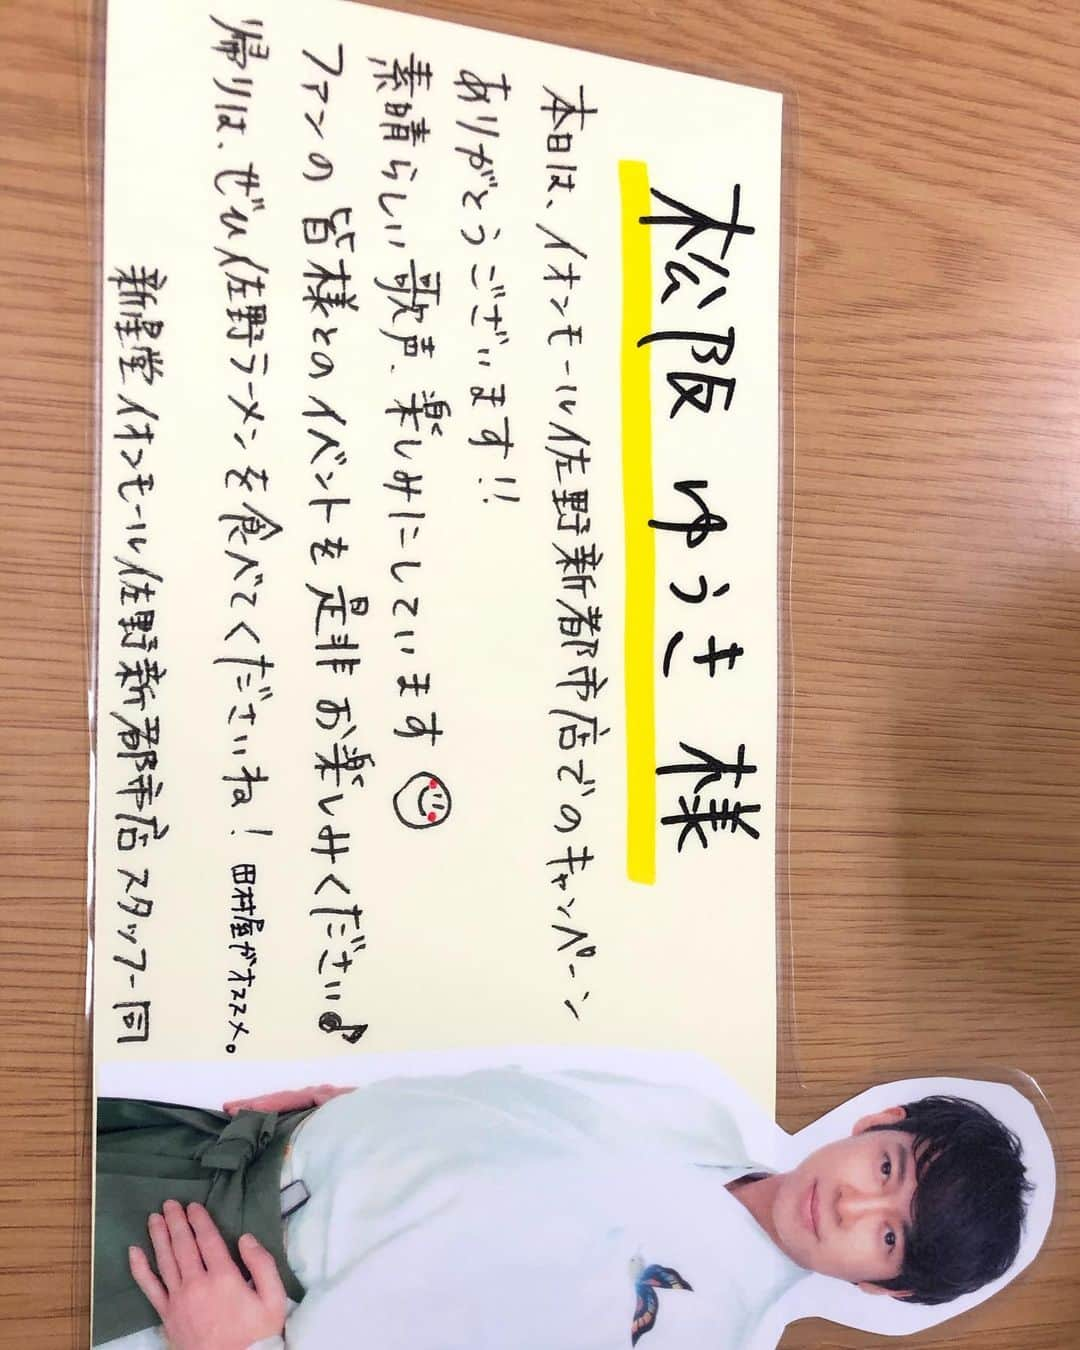 松阪ゆうき 様
本日は、イオンモール佐野新都市店でのキャンペーン
ありがとうございます!!
素晴らしい歌声、楽しみにしています
ファンの皆様とのイベントを是非お楽しみください♪
帰りは、ぜひ佐野ラーメンを食べてくださいね! 田村屋がオススメ。
新星堂イオンモール佐野新都市店スタッフ一同